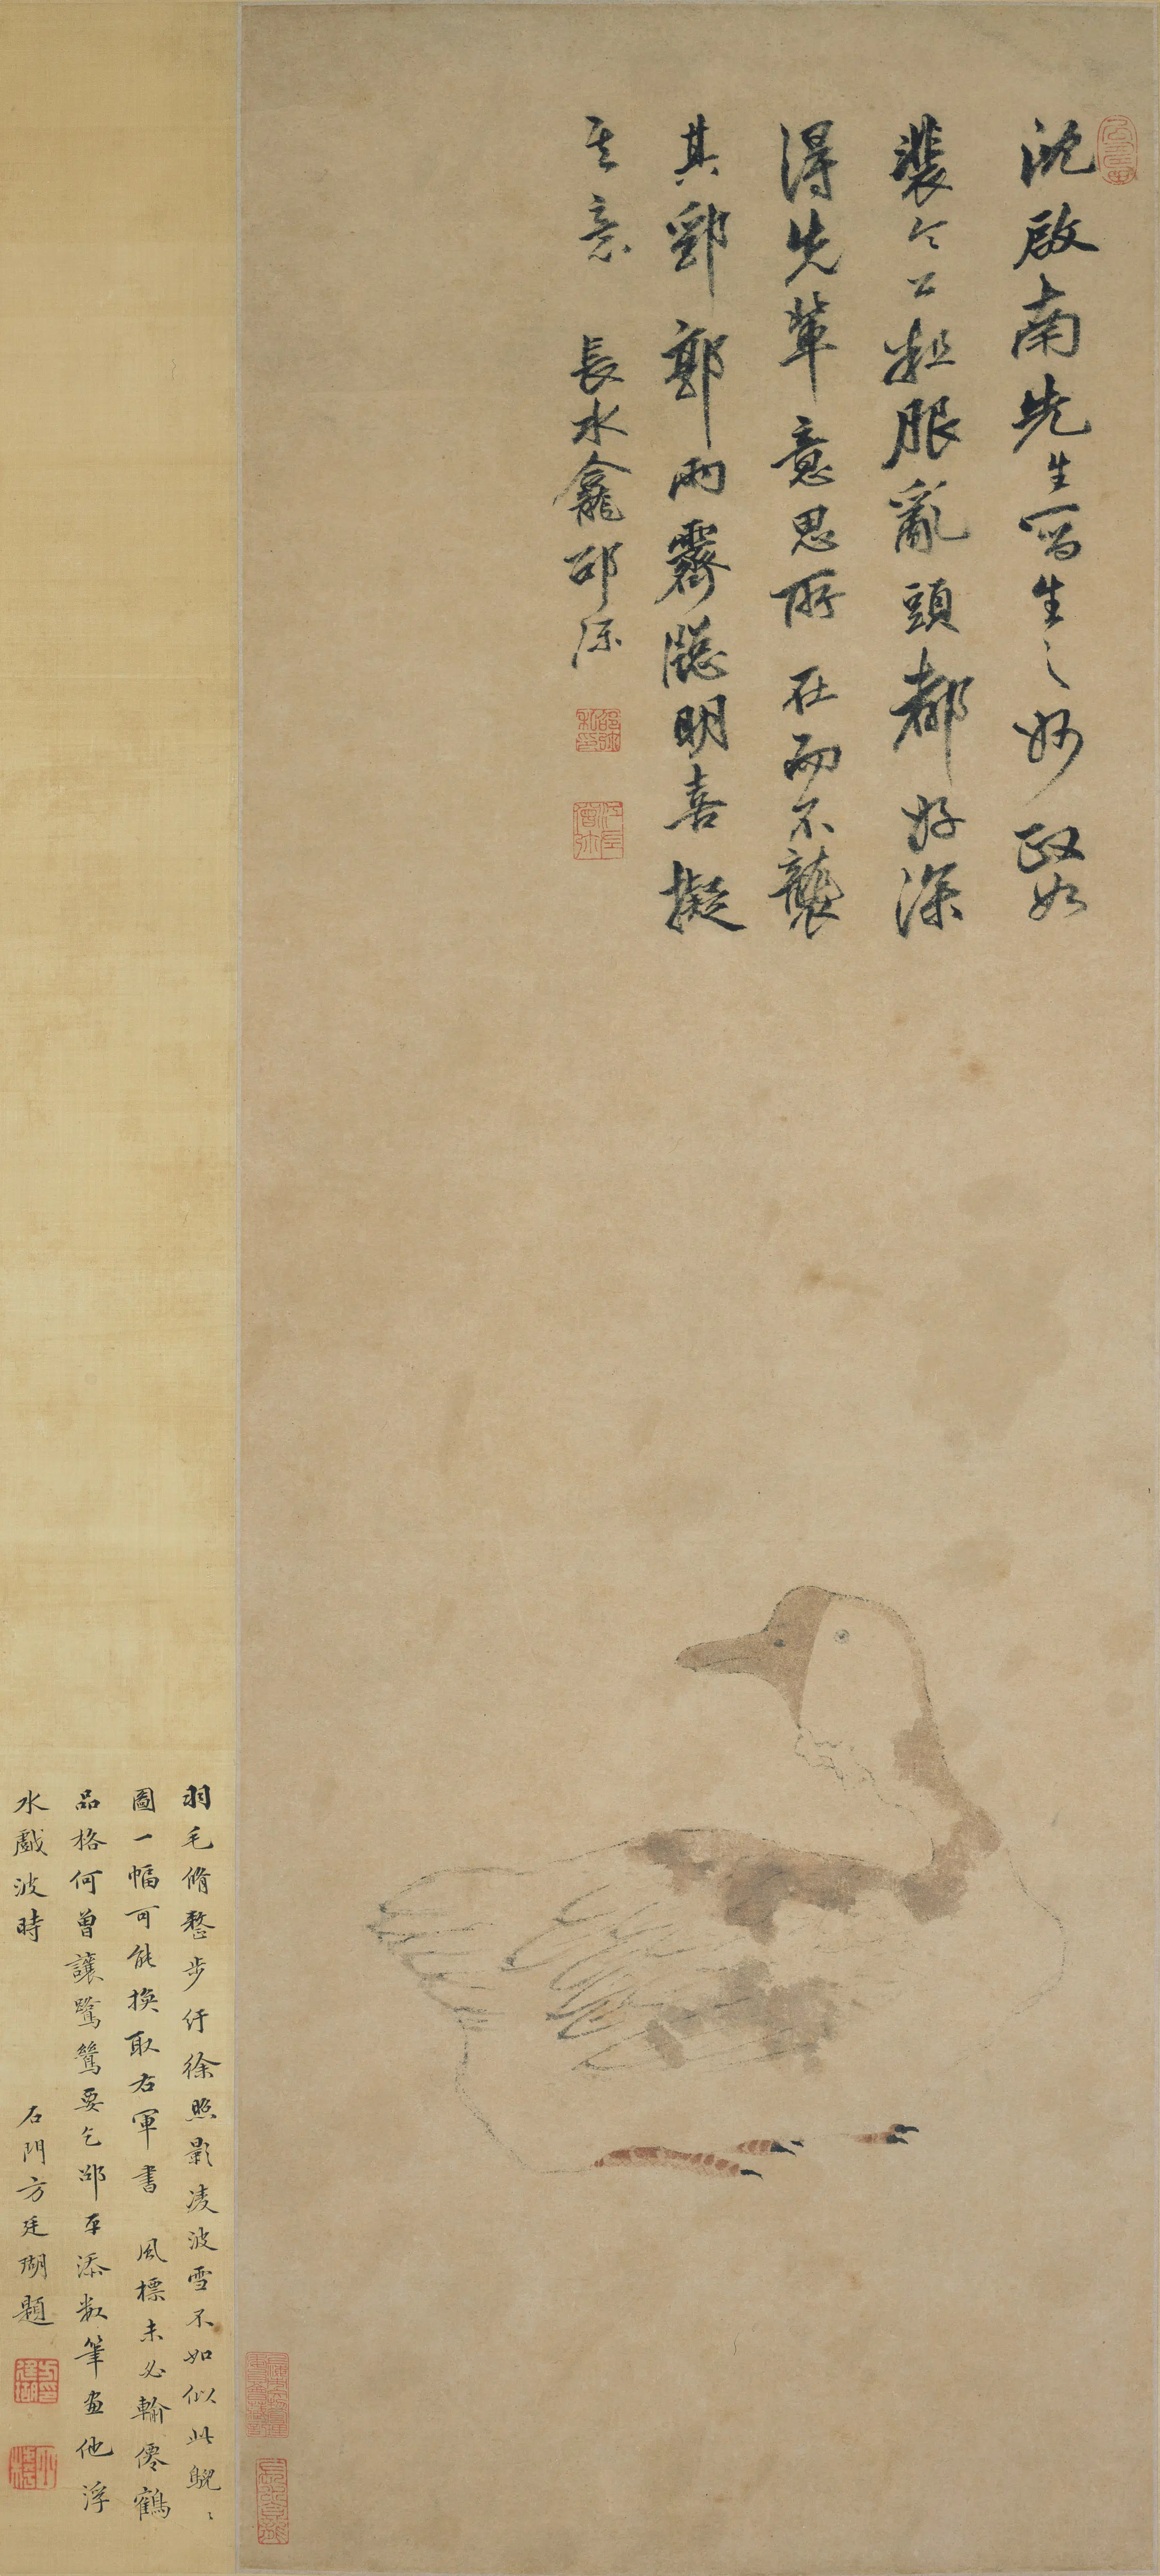 沈啟南先生寫生之妙政如
裴令公粗服亂頭都好深
得先輩意思所在而不襲
其郛郭雨霽牕明喜擬
其意 長水龕邵彌
羽毛脩整步行徐照影凌波雪不如似此鶃〻
圖一幅可能換取右軍書 風標未必輸僊鶴
品格何曾讓鷺鷥要乞邵平添數筆畫他浮
水戲波時 石門方廷瑚題